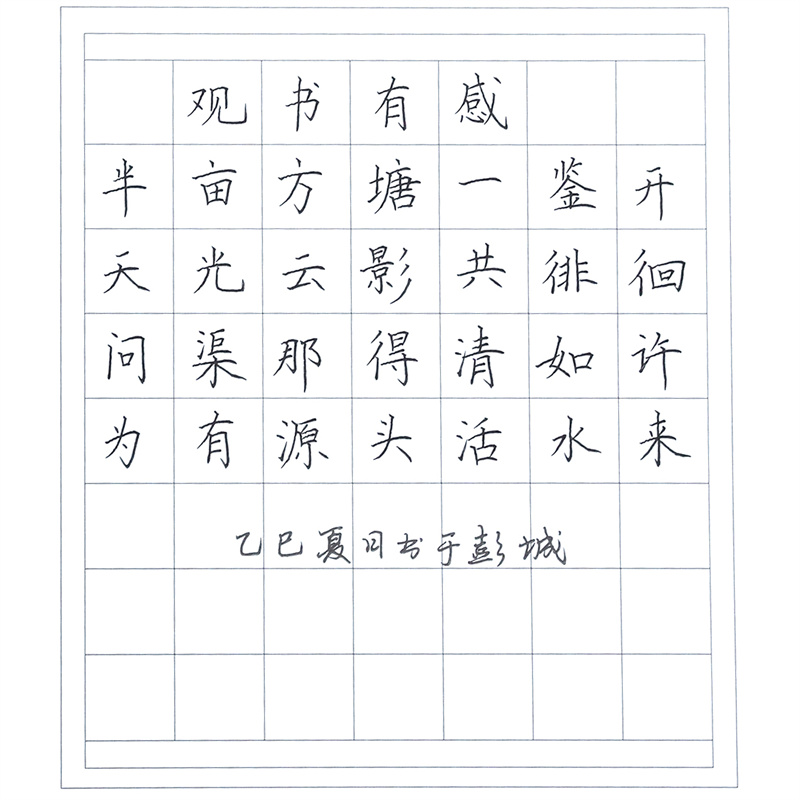 观书有感
半亩方塘一鉴开
天光云影共徘徊
问渠那得清如许
为有源头活水来
乙巳夏日书于彭城